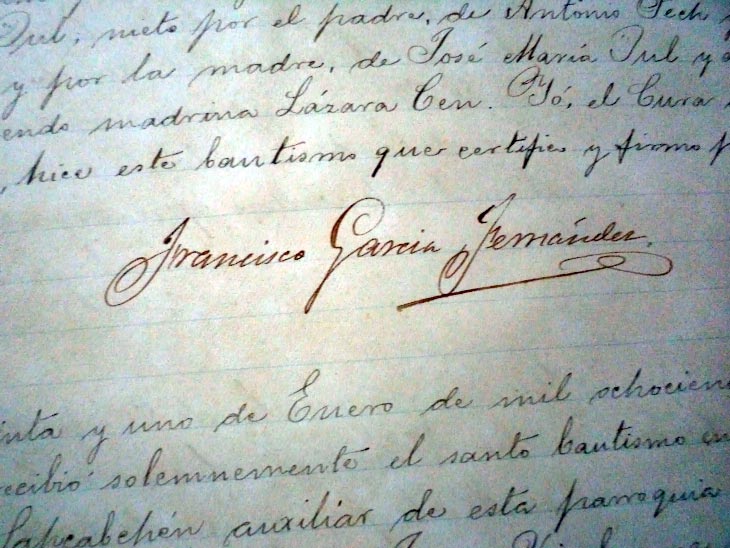 Tul, nieto por el padre, de Antonio Pech y
y por la madre, de José María Tul y
endo madrina Lázara Cen. Yó, el Cura
, hice este bautismo que certifico y firmo
Francisco Garcia Fernández.
inta y uno de Enero de mil ochocien
recibió solemnemente el santo bautismo en
auxiliar de esta parroquia